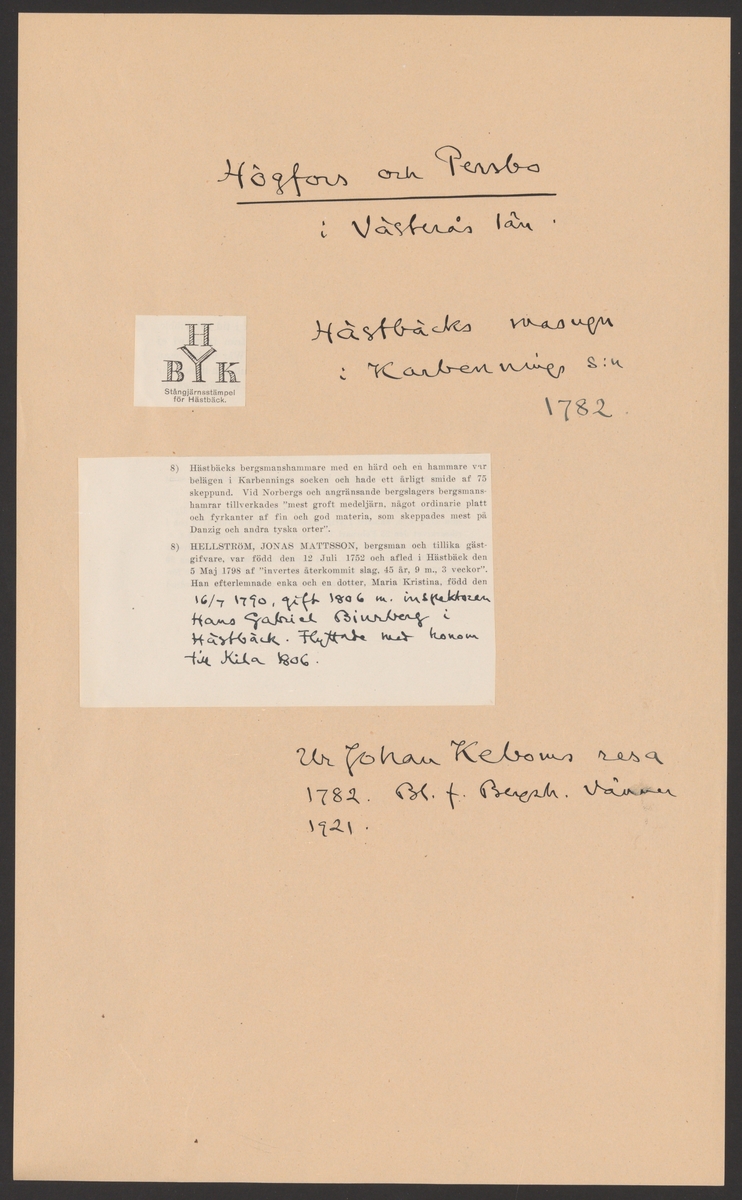 Högfors och Persbo
i Västerås län.
Hästbäcks masugn
i Karbennings s:n
1782.
H
BYK
Stångjärnsstämpel
för Hästbäck.
8) Hästbäcks bergsmanshammare med en härd och en hammare var
belägen i Karbennings socken och hade ett årligt smide af 75
skeppund. Vid Norbergs och angränsande bergslagers bergsmans-
hamrar tillverkades "mest groft medeljärn, något ordinarie platt
och fyrkanter af fin och god materia, som skeppades mest på
Danzig och andra tyska orter".
8) HELLSTRÖM, JONAS MATTSSON, bergsman och tillika gäst-
gifvare, var född den 12 Juli 1752 och afled i Hästbäck den
5 Maj 1798 af "invertes återkommit slag, 45 år, 9 m., 3 veckor".
Han efterlemnade enka och en dotter, Maria Kristina, född den
16/7 1790, gift 1806 m. inspektoren
Hans Gabriel Biurberg i
Hästbäck. Flyttade med honom
till Kila 1806.
Ur Johan Keboms resa
1782. Bl. f. Bergsh. Vänner
1921.